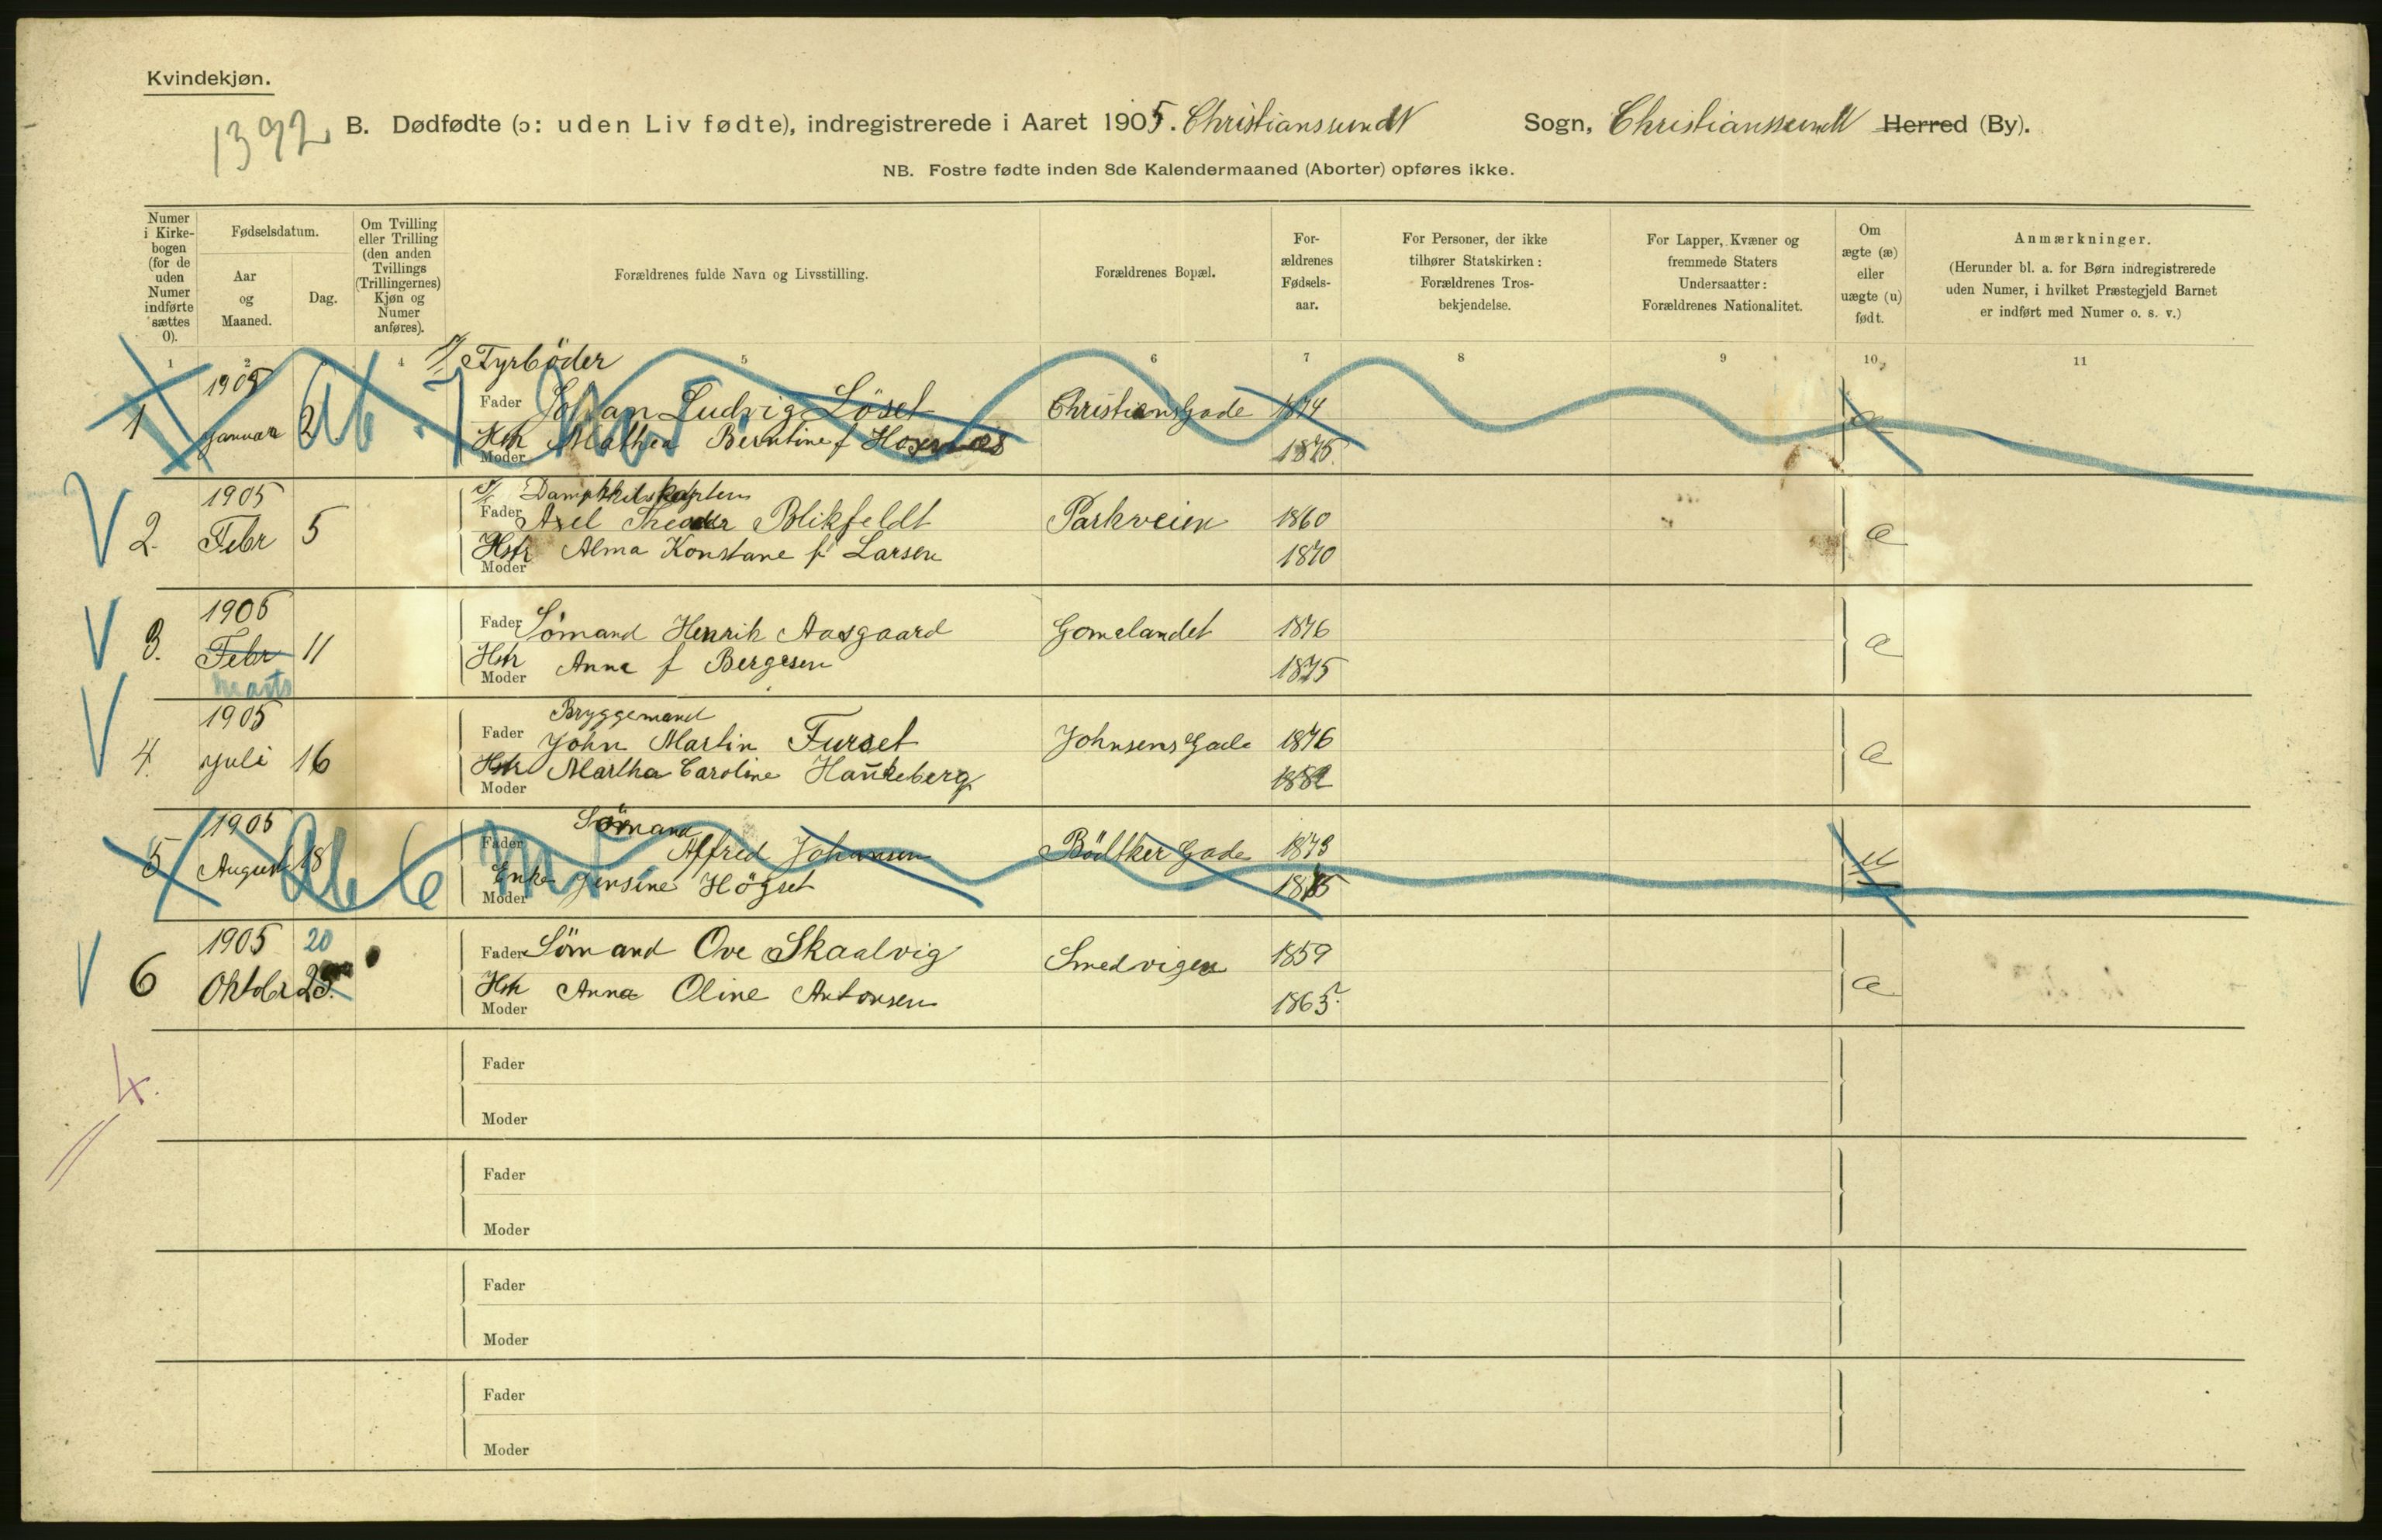 Kvindekjøn.
1392
B. Dødfødte (ɔ: uden Liv fødte), indregistrerede i Aaret 1905. Christianssund N Sogn, Christianssund N Herred (By).
NB. Fostre fødte inden 8de Kalendermaaned (Aborter) opføres ikke.
Numer i Kirke-bogen (for de uden Numer indførte sættes 0).
Fødselsdatum.
Aar og Maaned.
Dag.
Om Tvilling eller Trilling (den anden Tvillings (Trillingernes) Kjøn og Numer anføres).
Forældrenes fulde Navn og Livsstilling.
Forældrenes Bopæl.
For-ældrenes Fødsels-aar.
For Personer, der ikke tilhører Statskirken: Forældrenes Tros-bekjendelse.
For Lapper, Kvæner og fremmede Staters Undersaatter: Forældrenes Nationalitet.
Om ægte (æ) eller uægte (u) født.
Anmærkninger.
(Herunder bl. a. for Børn indregistrerede uden Numer, i hvilket Præstegjeld Barnet er indført med Numer o. s. v.)
1 2 4 5 6 7 8 9 10 11
Fyrböder
1 1905 Januar 2 Fader Johan Ludvig Löset Christians Gade 1874 æ
Hstr Moder Mathea Berntine f 1875
Dampskibskaptein
2. 1905 Febr 5 Fader Axel Theodor Blikfeldt Parkveien 1860 æ
Hstr Moder Alma Konstane f Larsen 1870
3. 1905 Febr 11 Fader Sömand Henrik Aasgaard Gomalandet 1876 æ
Marts
Hstr Moder Anna f Bergesen 1875
Bryggemand
4. 1905 Juli 16 Fader John Martin Furset Johnsens Gade 1876 æ
Hstr Moder Martha Caroline Hankeberg 1882
Sömand
5 1905 August 18 Fader Alfred Johansen Bödtker Gade 1873 u
Enke Moder Jensine Högset 1875
6 1905 Oktobr 20 Fader Sömand Ove Skaalvig Smedvigen 1859 æ
Hstr Moder Anna Oline Antonsen 1863
4.
Fader
Moder
Fader
Moder
Fader
Moder
Fader
Moder